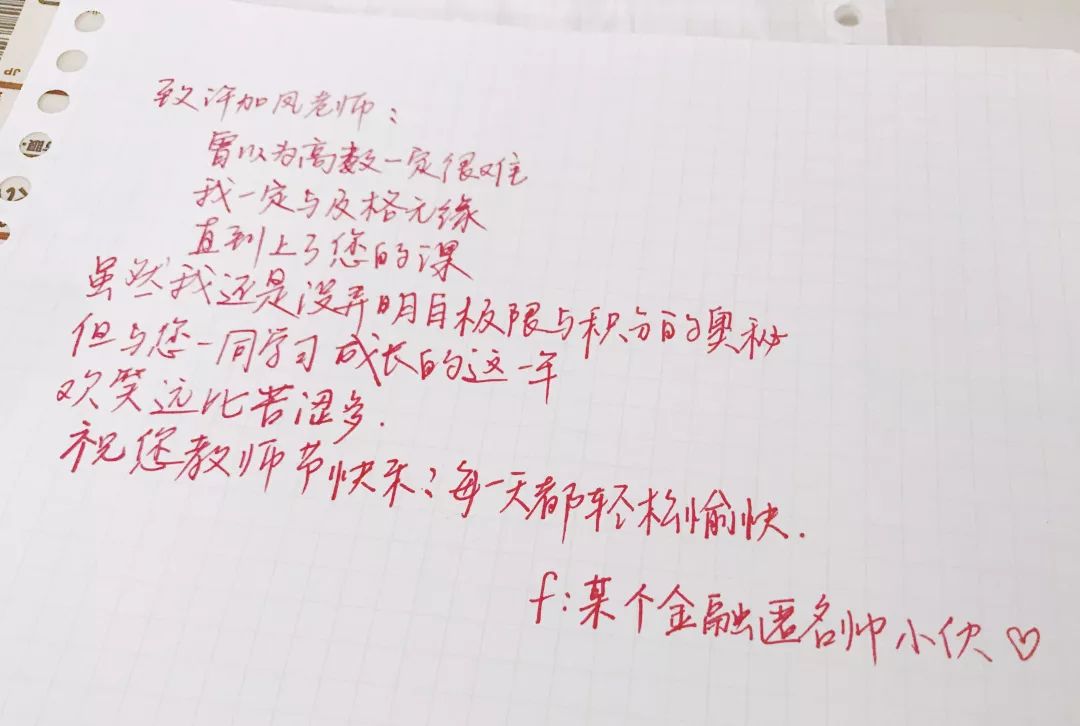 致许加凤老师：
曾以为高数一定很难
我一定与及格无缘
直到上了您的课
虽然我还是没弄明白极限与积分的奥秘
但与您一同学习成长的这一年
欢笑远比苦涩多.
祝您教师节快乐；每一天都轻松愉快.
f:某个金融匿名帅小伙♡
JP